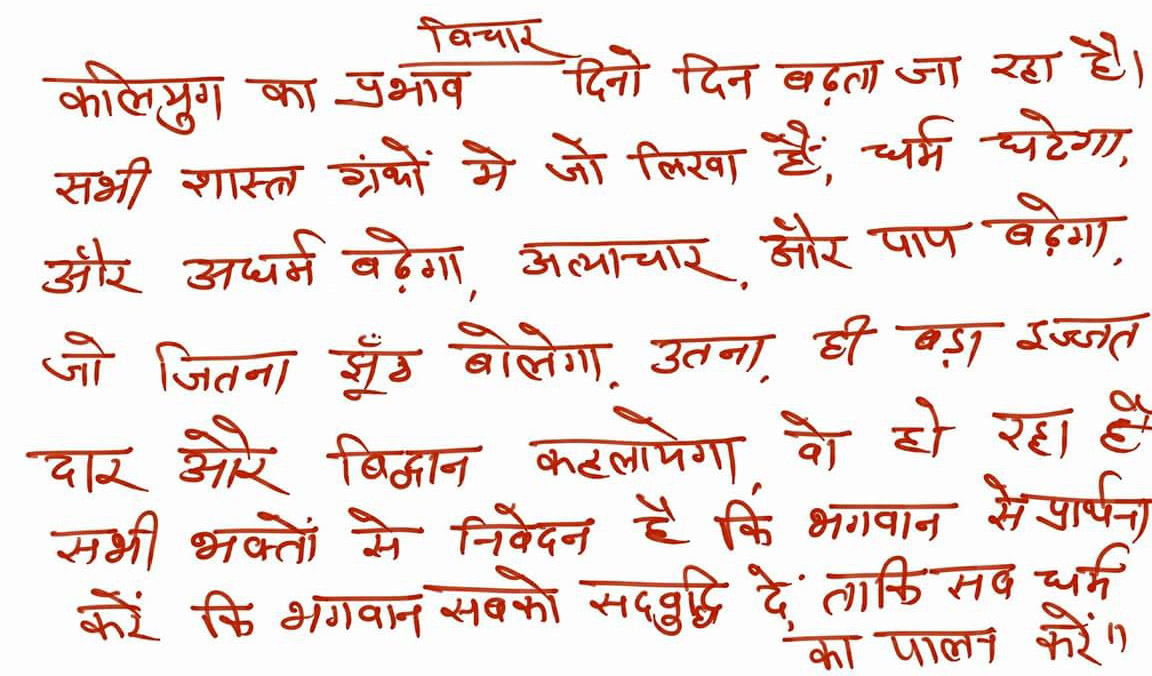 विचार
कलियुग का प्रभाव दिनो दिन बढ़ता जा रहा है।
सभी शास्त्र ग्रंथों मे जो लिखा हैं, धर्म घटेगा,
और अधर्म बढ़ेगा, अत्याचार, और पाप बढ़ेगा,
जो जितना झूँठ बोलेगा, उतना, ही बड़ा इज्जत
दार और बिद्वान कहलायेगा, वो हो रहा है
सभी भक्तों से निवेदन है कि भगवान से प्रार्थना
करें कि भगवान सबको सदबुद्धि दें, ताकि सब धर्म
का पालन करें"